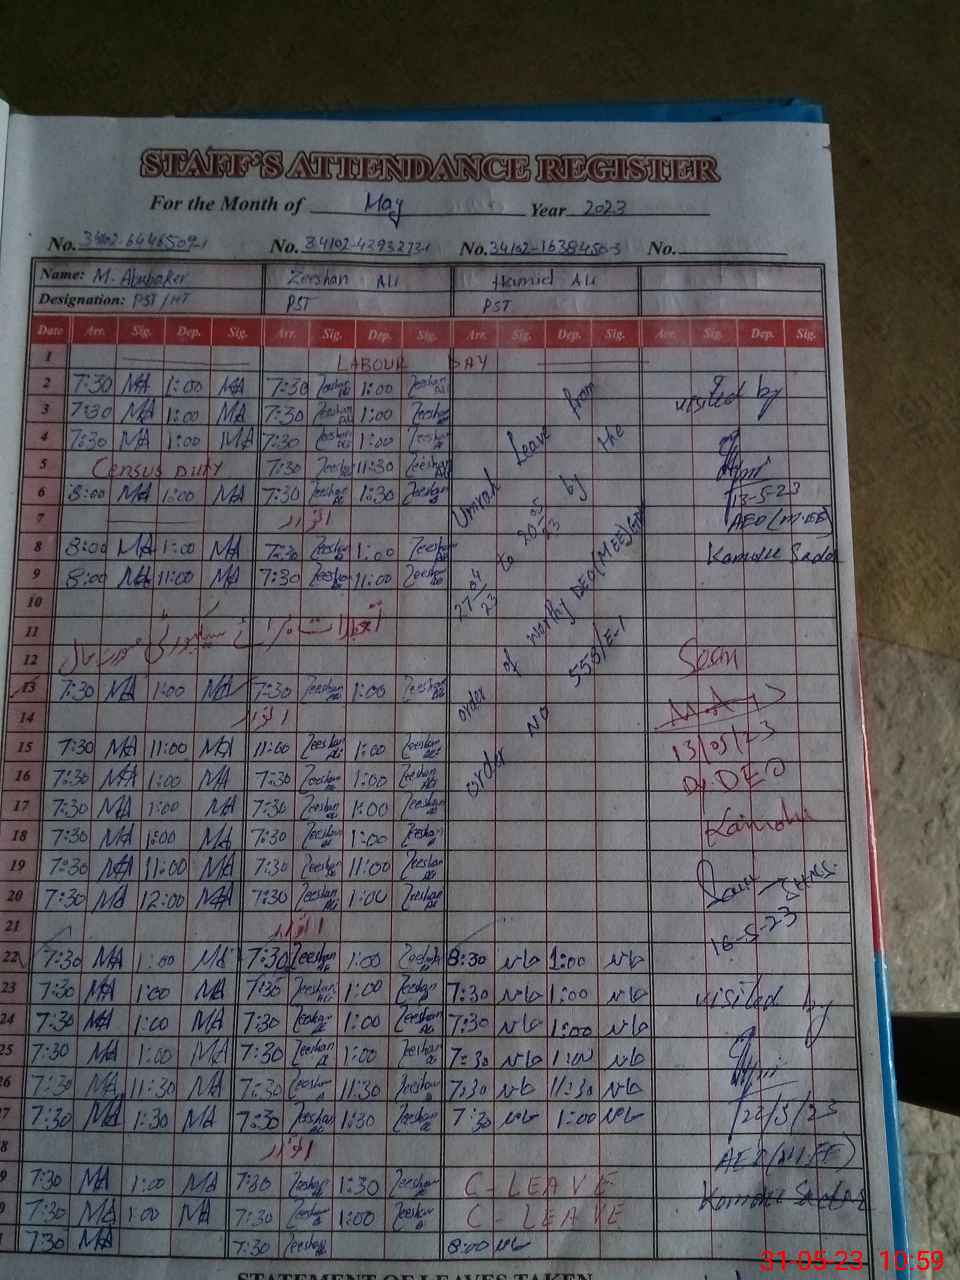 STAFF'S ATTENDANCE REGISTER
For the Month of May Year 2023
No. 34102-6446509-1 No. 34102-4393273-1 No. 34102-1638456-3 No.
Name: M. Abubaker Zeeshan Ali Hamid Ali
Designation: PST/HT PST PST
Date Arr. Sig. Dep. Sig. Arr. Sig. Dep. Sig. Arr. Sig. Dep. Sig. Arr. Sig. Dep. Sig.
1 LABOUR DAY
2 7:30 MA 1:00 MA 7:30 Zeeshan Ali 1:00 Zeeshan Ali
3 7:30 MA 1:00 MA 7:30 Zeeshan Ali 1:00 Zeeshan Ali
4 7:30 MA 1:00 MA 7:30 Zeeshan Ali 1:00 Zeeshan Ali
5 Census Duty 7:30 Zeeshan 11:30 Zeeshan Ali
6 8:00 MA 1:00 MA 7:30 Zeeshan Ali 1:30 Zeeshan
7 اتوار
8 8:00 MA 1:00 MA 7:30 Zeeshan 1:00 Zeeshan
9 8:00 MA 11:00 MA 7:30 Zeeshan 11:00 Zeeshan
10
11
12
13 7:30 MA 1:00 MA 7:30 Zeeshan 1:00 Zeeshan
14 اتوار
15 7:30 MA 11:00 MA 11:00 Zeeshan Ali 1:00 Zeeshan
16 7:30 MA 1:00 MA 7:30 Zeeshan 1:00 Zeeshan
17 7:30 MA 1:00 MA 7:30 Zeeshan 1:00 Zeeshan
18 7:30 MA 1:00 MA 7:30 Zeeshan 1:00 Zeeshan
19 7:30 MA 11:00 MA 7:30 Zeeshan 11:00 Zeeshan
20 7:30 MA 12:00 MA 7:30 Zeeshan Ali 1:00 Zeeshan Ali
21 اتوار
22 7:30 MA 1:00 MA 7:30 Zeeshan 1:00 Zeeshan 8:30 1:00
23 7:30 MA 1:00 MA 7:30 Zeeshan 1:00 Zeeshan 7:30 1:00
24 7:30 MA 1:00 MA 7:30 Zeeshan 1:00 Zeeshan 7:30 1:00
25 7:30 MA 1:00 MA 7:30 Zeeshan 1:00 Zeeshan 7:30 1:00
26 7:30 MA 11:30 MA 7:30 Zeeshan 11:30 Zeeshan 7:30 11:30
7 7:30 MA 1:30 MA 7:30 Zeeshan 1:30 Zeeshan 7:30 1:00
8 اتوار
9 7:30 MA 1:00 MA 7:30 Zeeshan 1:30 Zeeshan C-LEAVE
7:30 MA 1:00 MA 7:30 Zeeshan 1:00 Zeeshan C-LEAVE
7:30 MA 7:30 Zeeshan 8:00
Umrah Leave from
27-04-23 to 20-05-23 by the
order of worthy DEO(MEE)
order No 558/E-1
visited by
13-5-23
AEO(M.EE)
Kamoke Sadar
Seen
13/05/23
Dy. DEO
Kamoke
16-5-23
visited by
22/5/23
AEO(M.EE)
Kamoke Sadar
STATEMENT OF LEAVES TAKEN
31-05-23 10:59